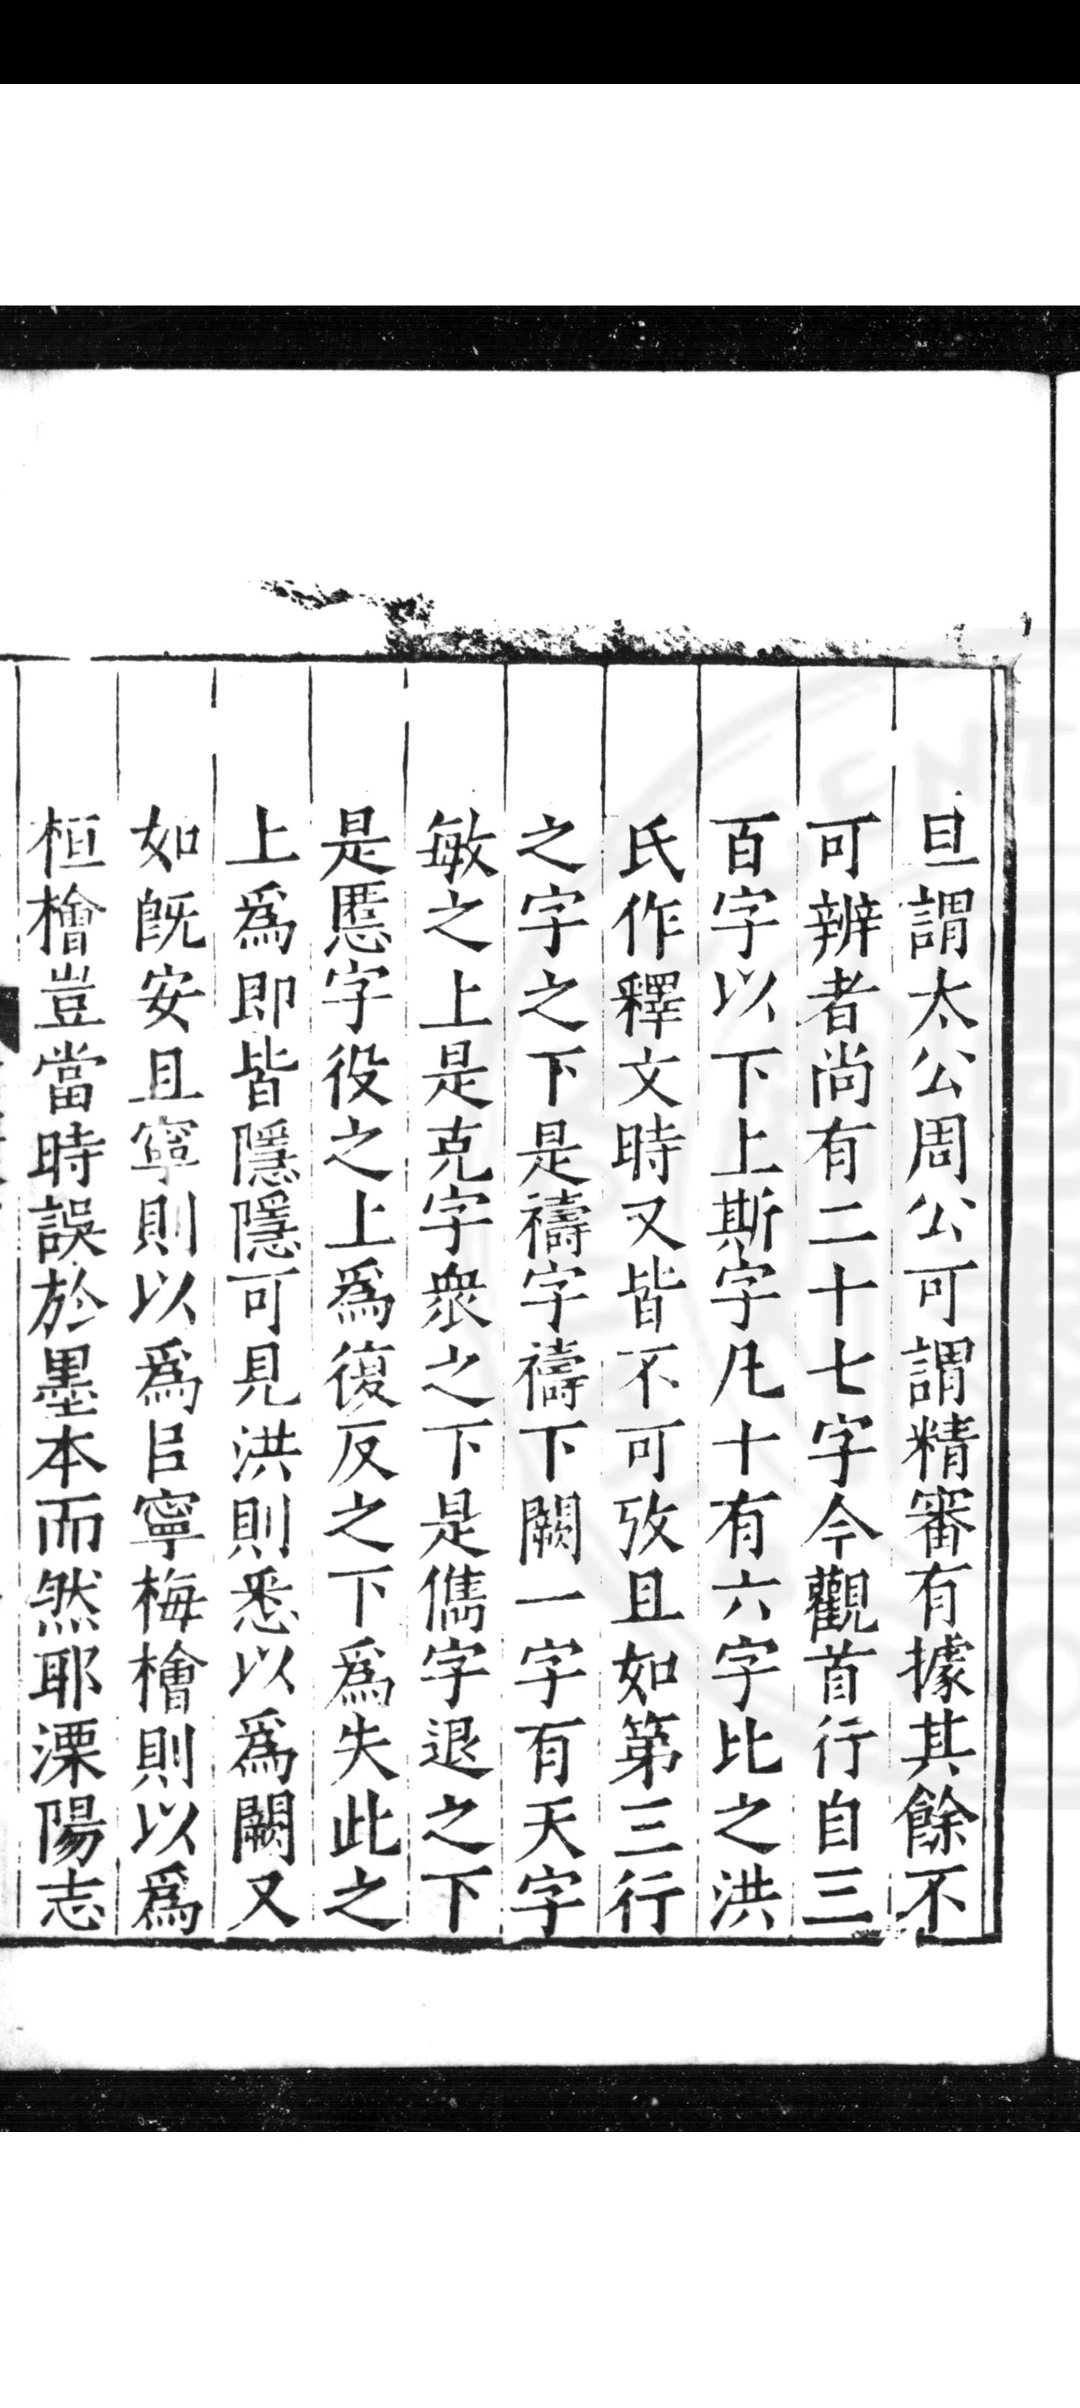 旦謂太公周公可謂精審有據其餘不
可辨者尚有二十七字今觀首行自三
百字以下上斯字凡十有六字比之洪
氏作釋文時又皆不可攷且如第三行
之字之下是禱字禱下闕一字有天字
敏之上是克字衆之下是儁字退之下
是慝字役之上爲復反之下爲失此之
上爲即皆隱隱可見洪則悉以爲闕又
如旣安且寧則以爲臣寧梅檜則以爲
桓檜豈當時誤於墨本而然耶溧陽志